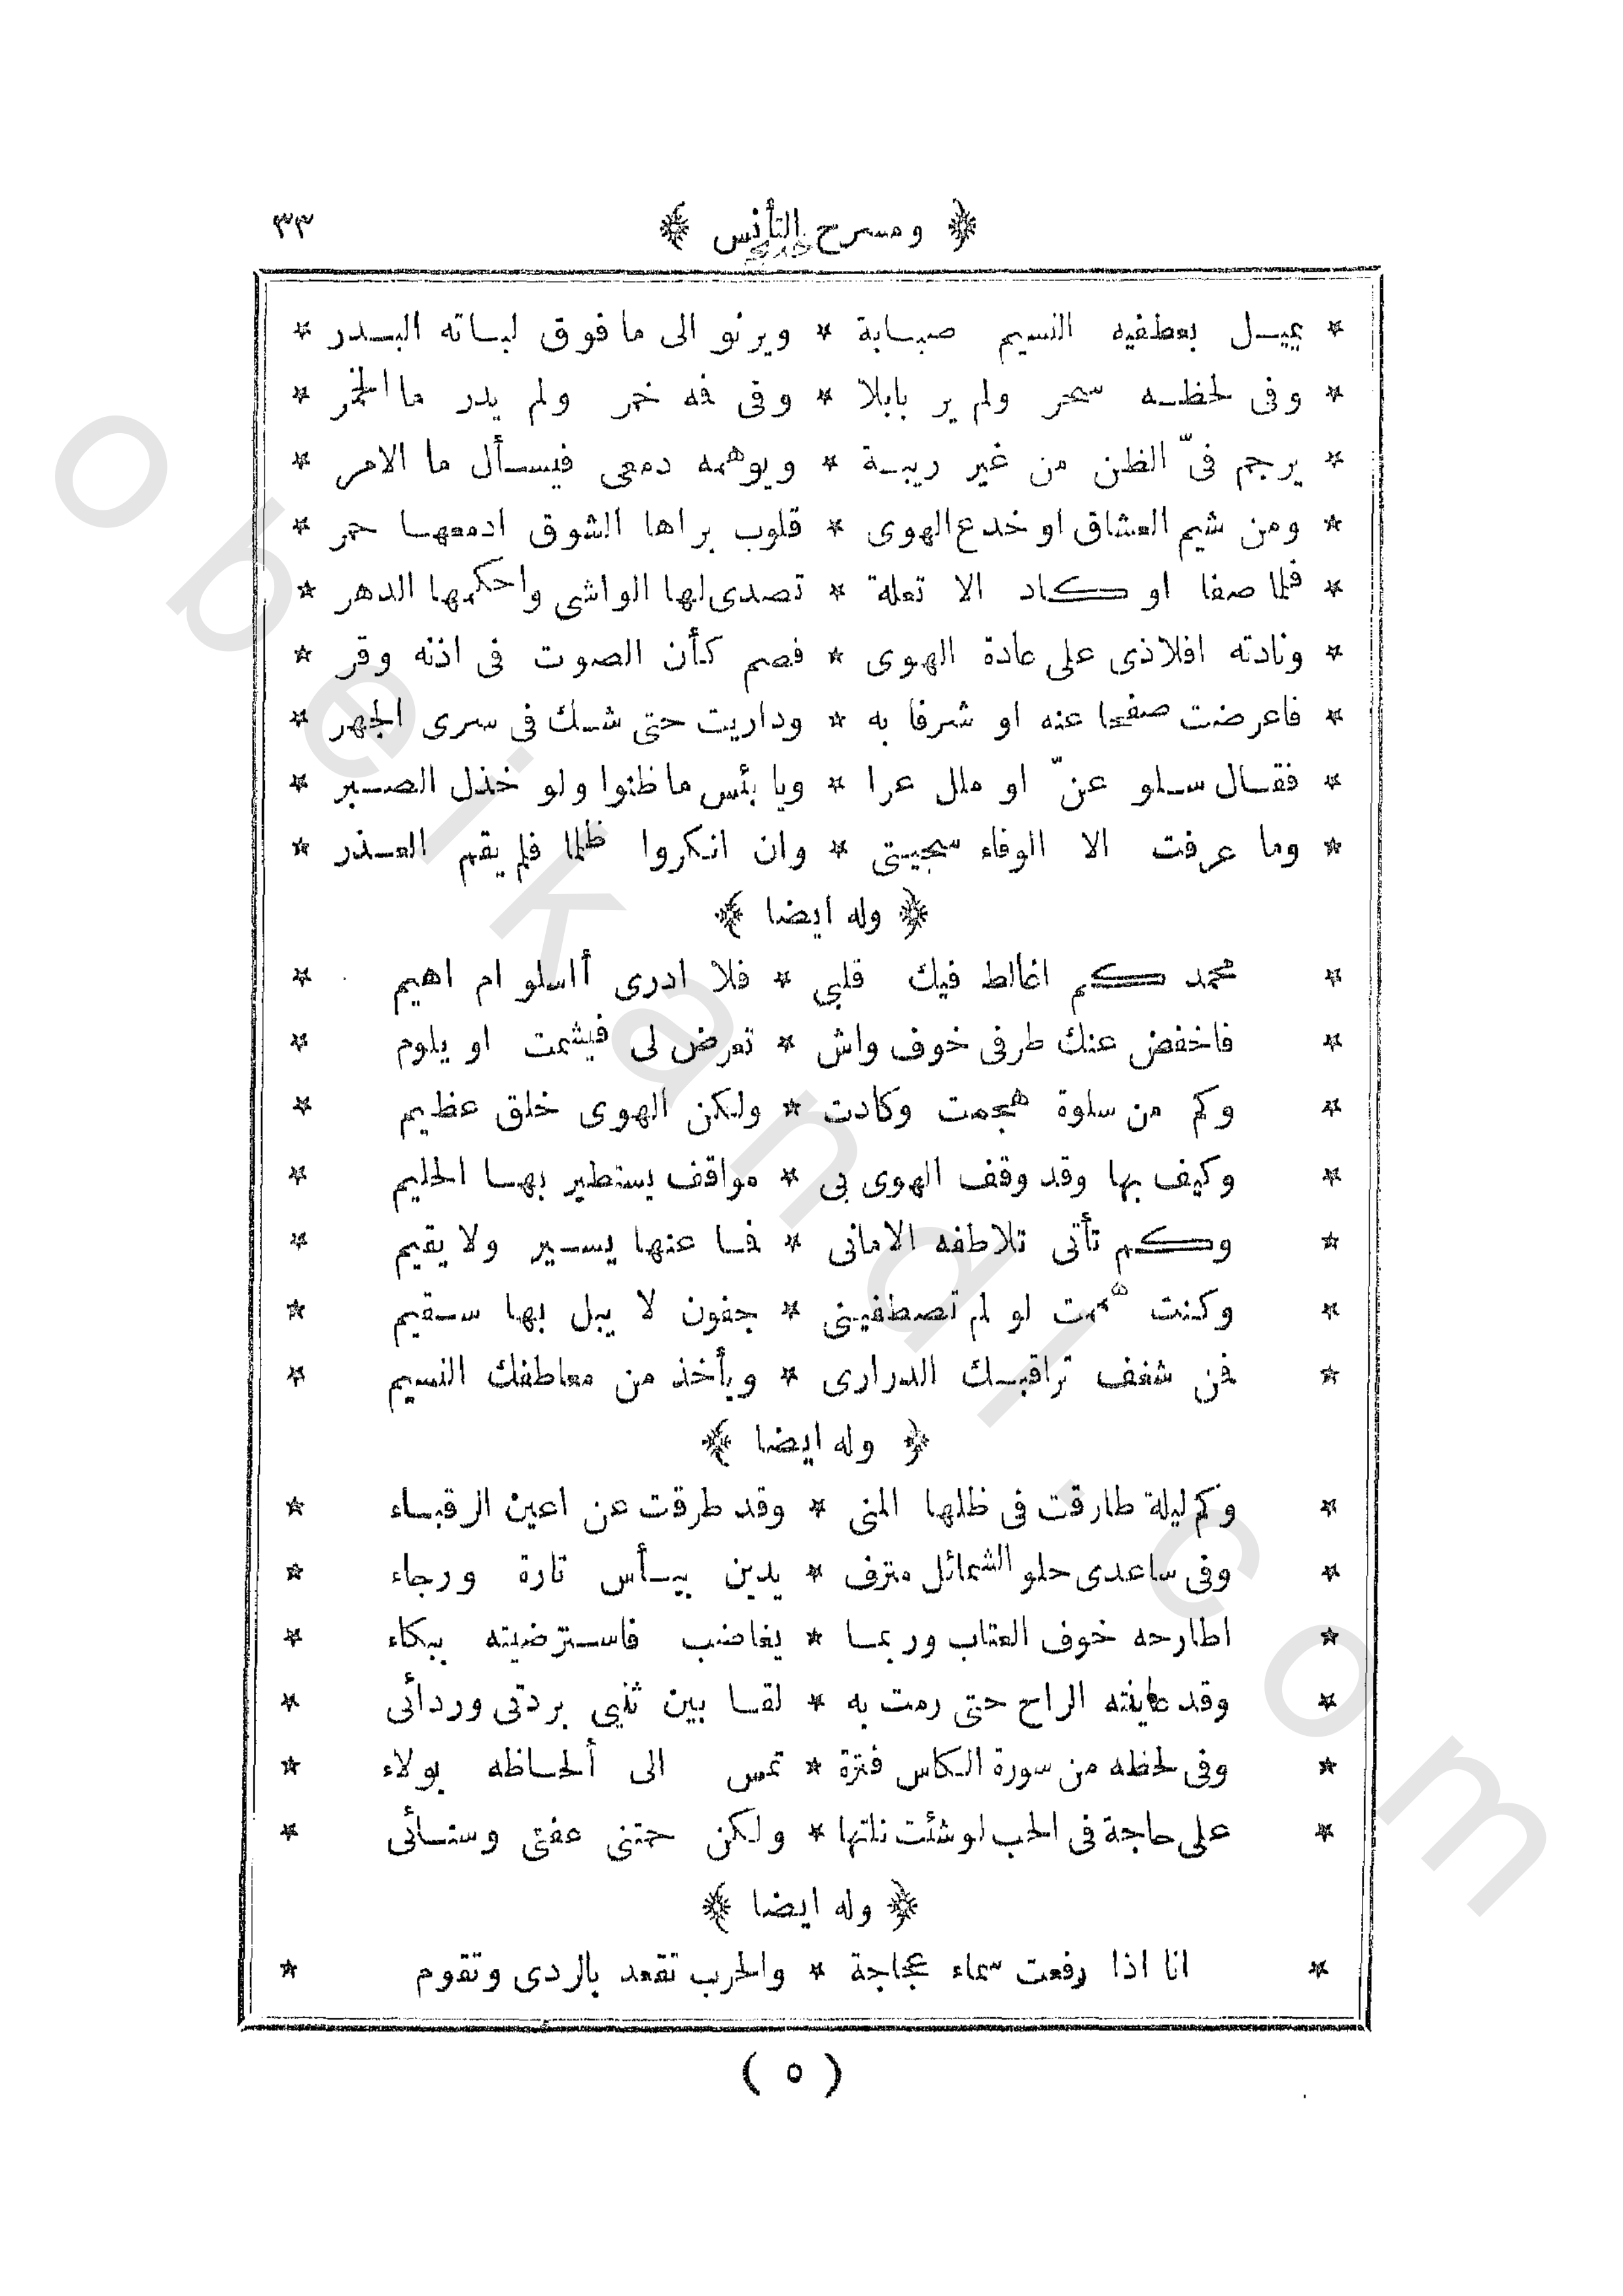 ﴿ ومسرح التأنس ﴾ ٣٣
* يميـل بعطفيه النسيم صبـابة * ويرنو الى ما فوق لبـاته البـدر *
* وفى لحظـه سحر ولم ير بابلا * وفى فمه خمر ولم يدر ما الخمر *
* يرجم فىّ الظن من غير ريبـة * ويوهمه دمعى فيسـأل ما الامر *
* ومن شيم العشاق او خدع الهوى * قلوب براها الشوق ادمعهـا حمر *
* فلما صفا او كاد الا تعلة * تصدى لها الواشى واحكمها الدهر *
* ونادته افلاذى على عادة الهوى * فصم كأن الصوت فى اذنه وقر *
* فاعرضت صفحا عنه او شرفا به * وداريت حتى شـك فى سرى الجهر *
* فقـال سـلو عنّ او ملل عرا * ويا بئس ما ظنوا ولو خذل الصـبر *
* وما عرفت الا الوفاء سجيـتى * وان انكروا ظلما فلم يقم العـذر *
﴿ وله ايضا ﴾
* محمد كم اغالط فيك قلبى * فلا ادرى أاسلو ام اهيم *
* فاخفض عنك طرفى خوف واش * تعرض لى فيشمت او يلوم *
* وكم من سلوة هجمت وكادت * ولكن الهوى خلق عظيم *
* وكيف بها وقد وقف الهوى بى * مواقف يستطير بهـا الحليم *
* وكم تأتى تلاطفه الامانى * فمـا عنها يسـير ولا يقيم *
* وكنت هممت لو لم تصطفينى * جفون لا يبل بها سـقيم *
* فمن شغف تراقبـك الدرارى * ويأخذ من معاطفك النسيم *
﴿ وله ايضا ﴾
* وكم ليلة طارقت فى ظلها المنى * وقد طرقت عن اعين الرقبـاء *
* وفى ساعدى حلو الشمائل مترف * يدين بيـأس تارة ورجاء *
* اطارحه خوف العتاب وربمـا * يغاضب فاسـترضيته ببكاء *
* وقد عاينته الراح حتى رمت به * لقـا بين ثنيي بردتى وردائى *
* وفى لحظه من سورة الكاس فترة * تمس الى ألحـاظه بولاء *
* على حاجة فى الحب لو شئت نلتها * ولكن حمتنى عفتى وسنـائى *
﴿ وله ايضا ﴾
* انا اذا رفعت سماء عجاجة * والحرب تقعد بالردى وتقوم *
( ٥ )
obeikandl.com